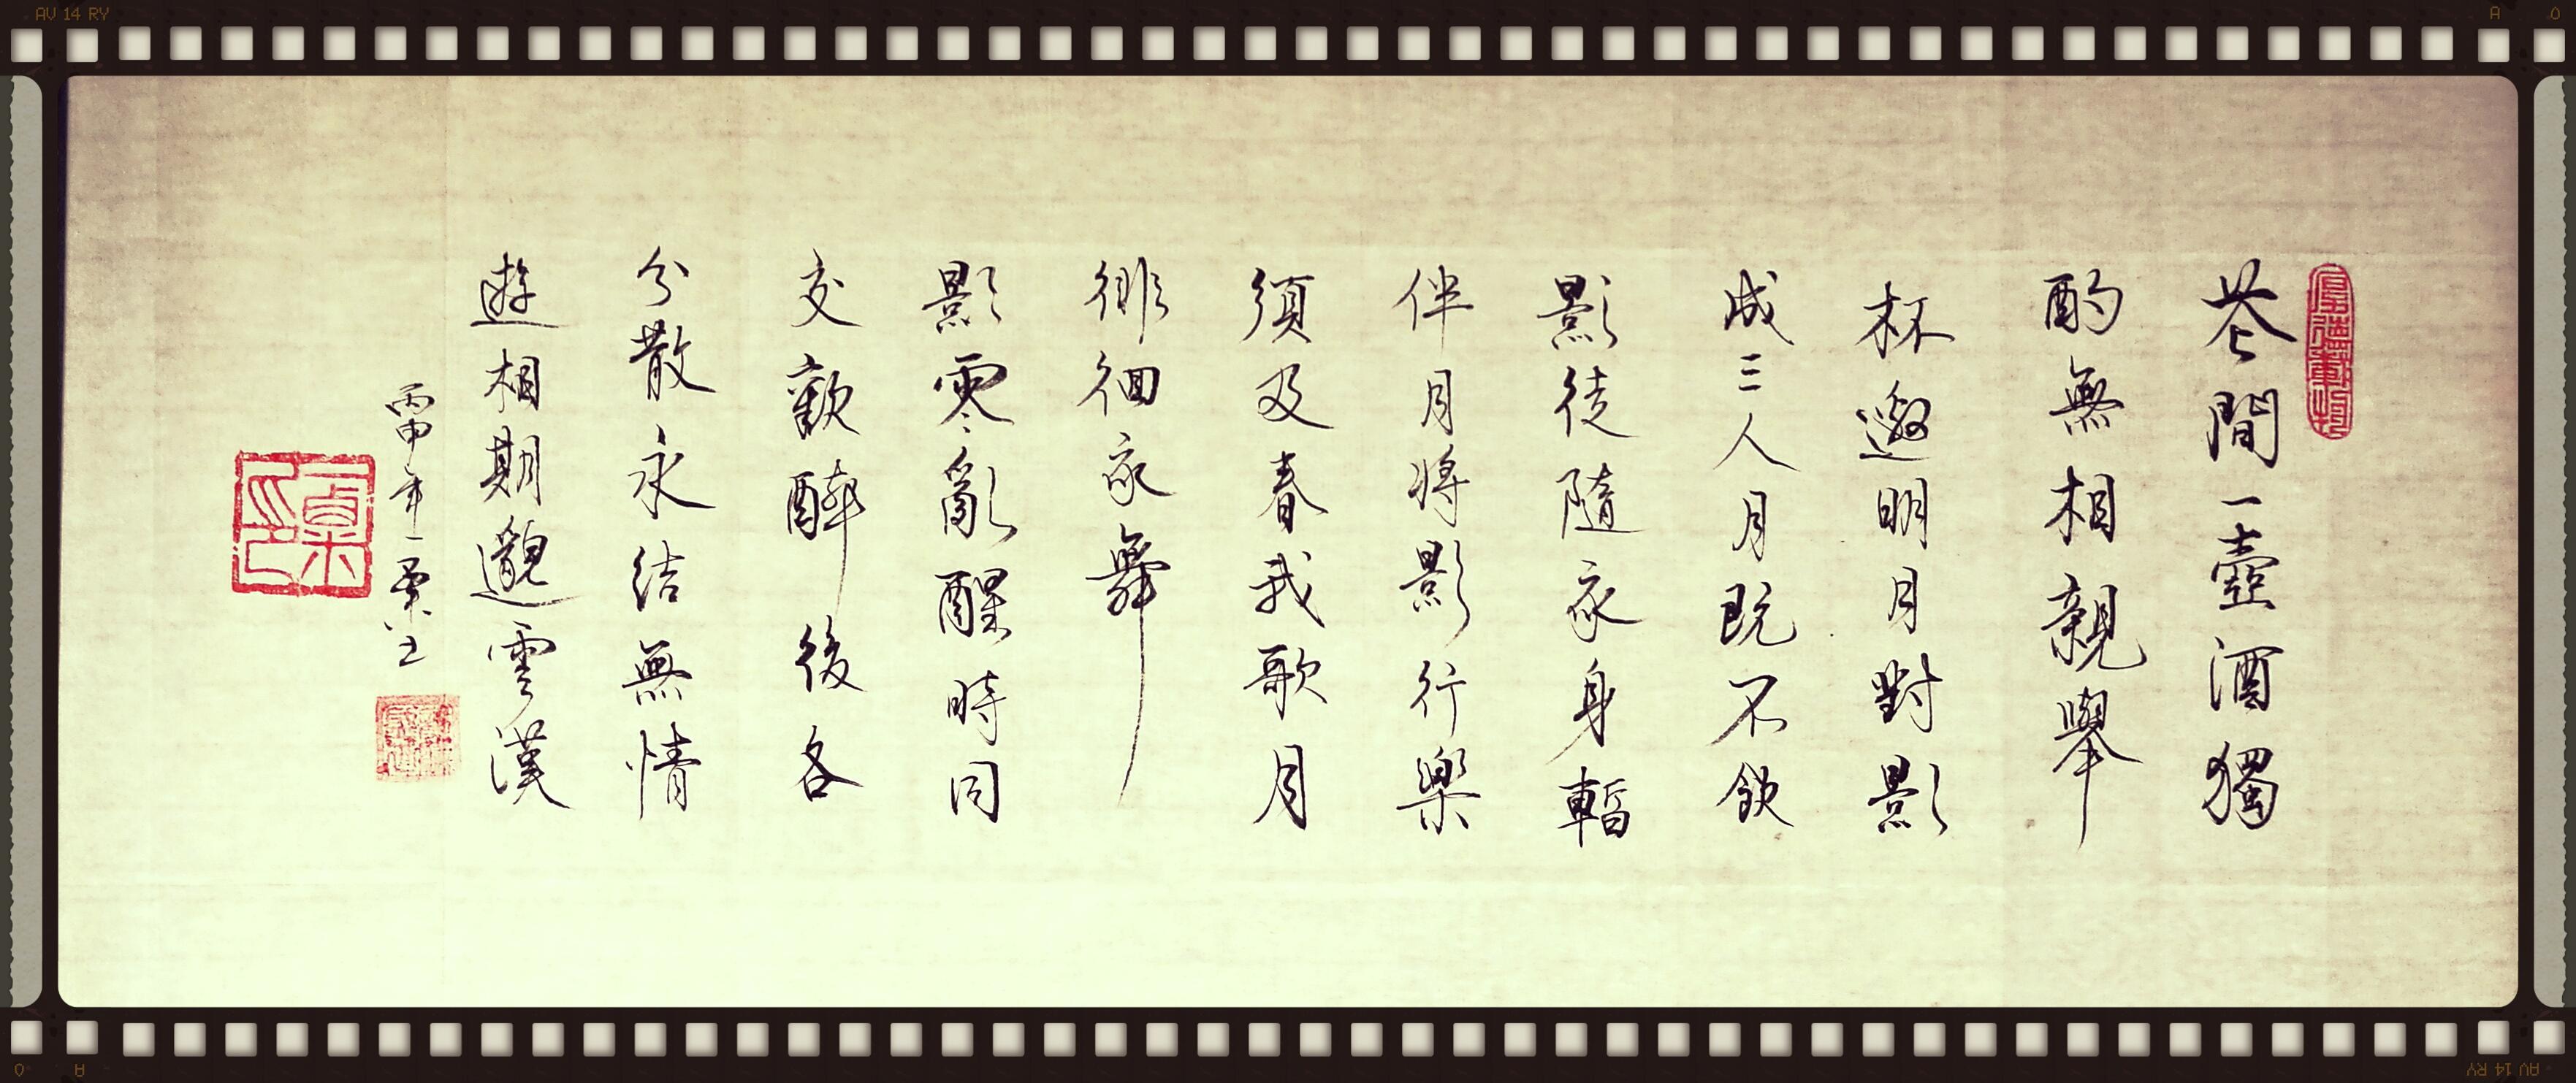 厚德載物
花間一壺酒獨
酌無相親舉
杯邀明月對影
成三人月既不飲
影徒隨我身暫
伴月將影行樂
須及春我歌月
徘徊我舞
影零亂醒時同
交歡醉後各
分散永結無情
遊相期邈雲漢
丙申年一粟
AV 14 RY
AV 14 RY